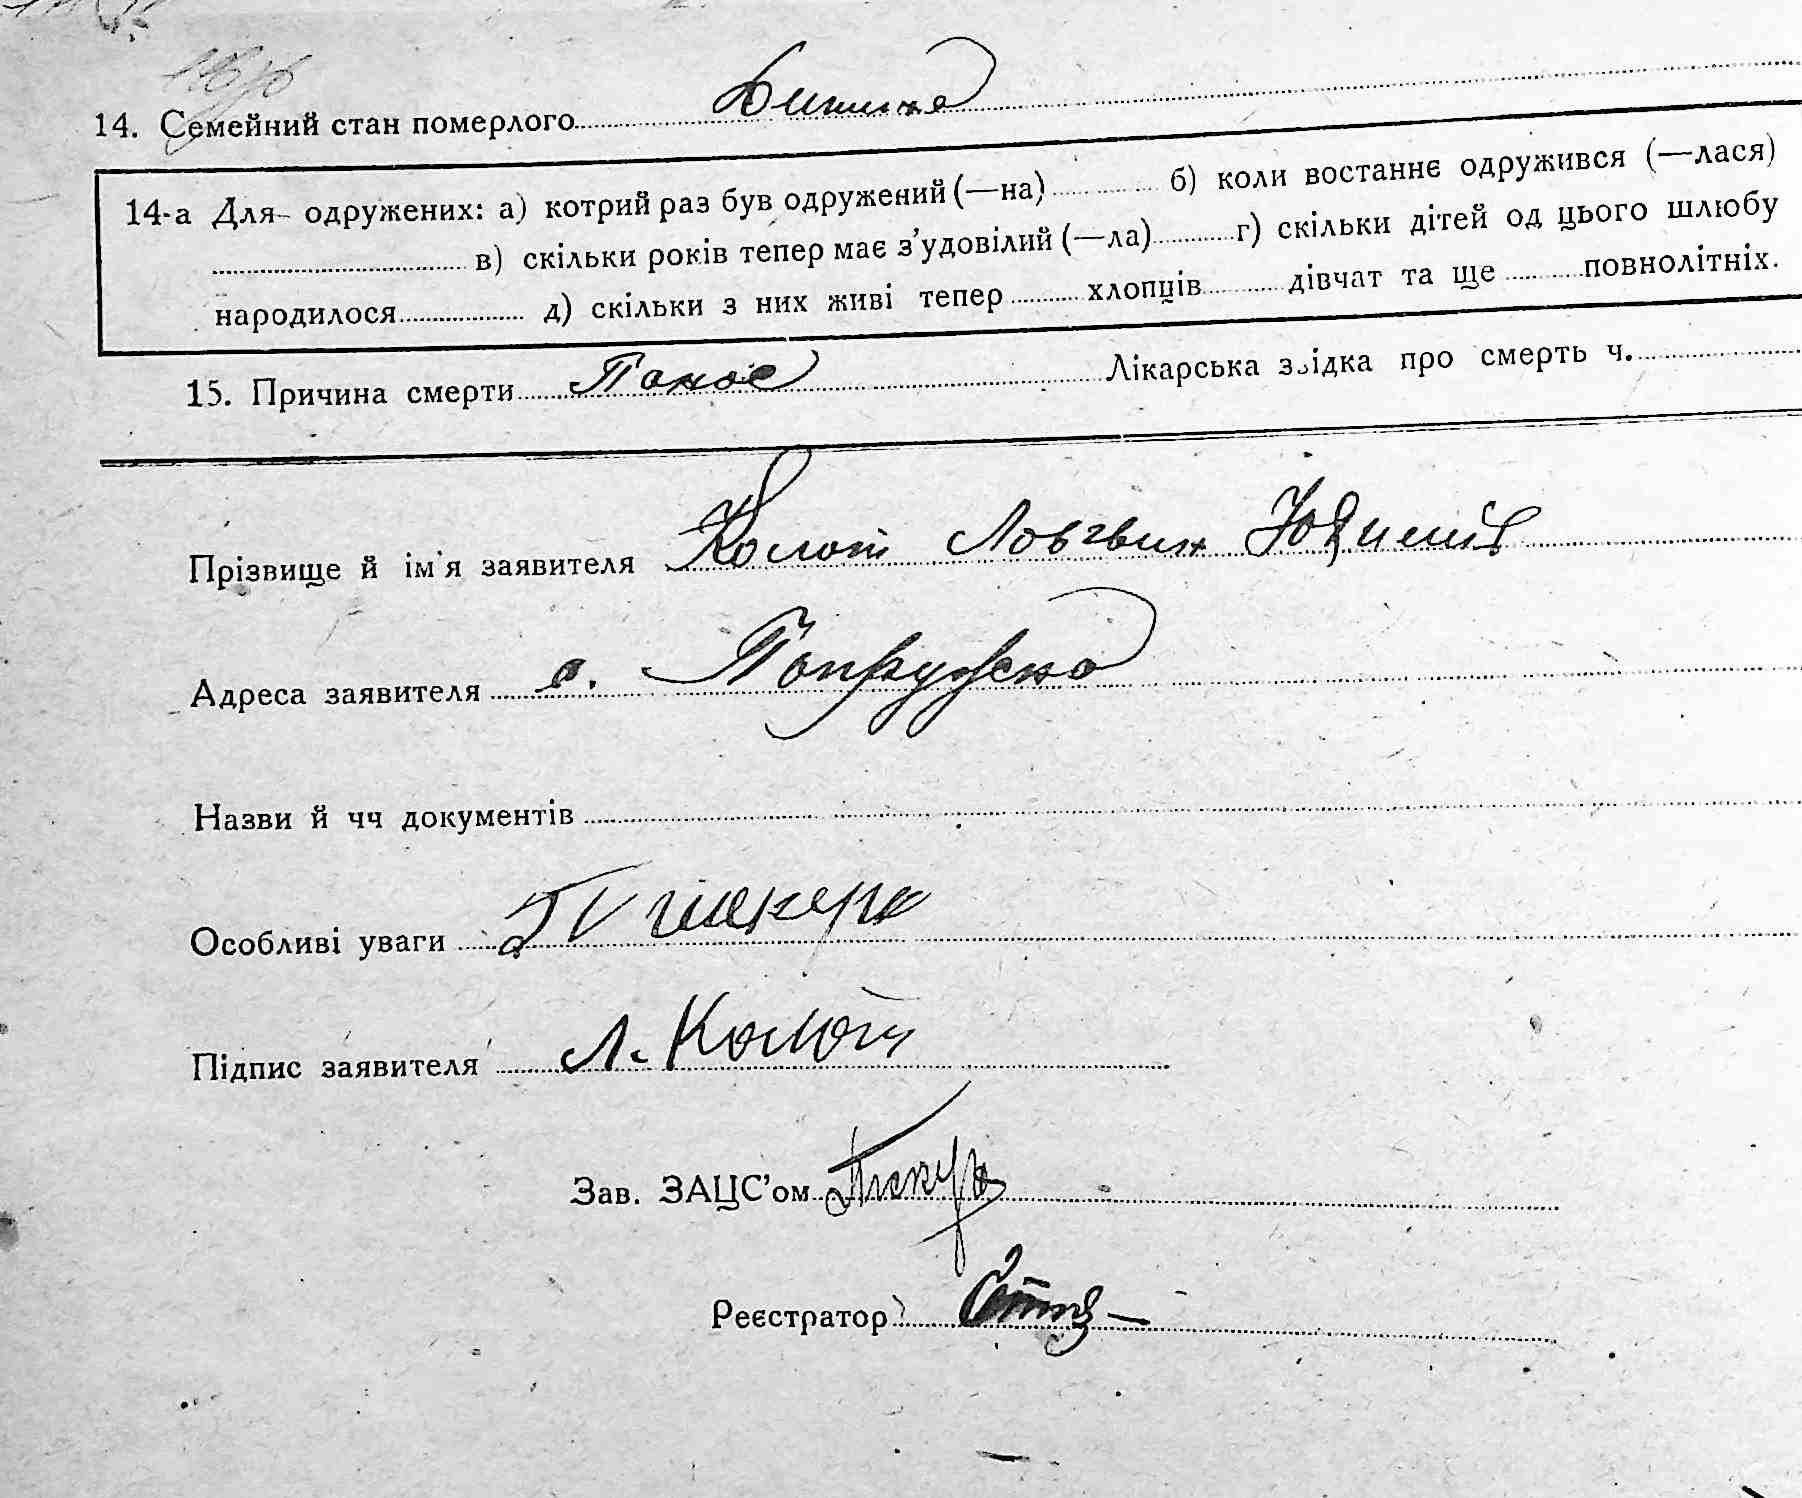 14. Семейний стан померлого Дитина
14-а Для одружених: а) котрий раз був одружений (—на) б) коли востаннє одружився (—лася)
в) скільки років тепер має з’удовілий (—ла) г) скільки дітей од цього шлюбу
народилося д) скільки з них живі тепер хлопців дівчат та ще повнолітніх.
15. Причина смерти Понос Лікарська звідка про смерть ч.
Прізвище й ім'я заявителя Колот Ловгвин
Адреса заявителя с. Попружна
Назви й чч документів
Особливі уваги
Підпис заявителя Л. Колот
Зав. ЗАЦС’ом
Реєстратор